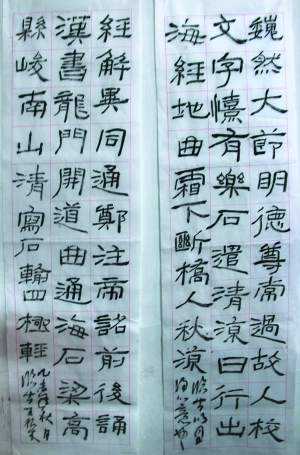 巍然大節明德尊南過故人校
文字憶有樂石遣清涼日行出
海經地曲霜下斷橋人秋漠
經解異同通鄭注席銘前後誦
漢書龍門開道曲通海石梁高
縣峻南山清寫石輸四極輕